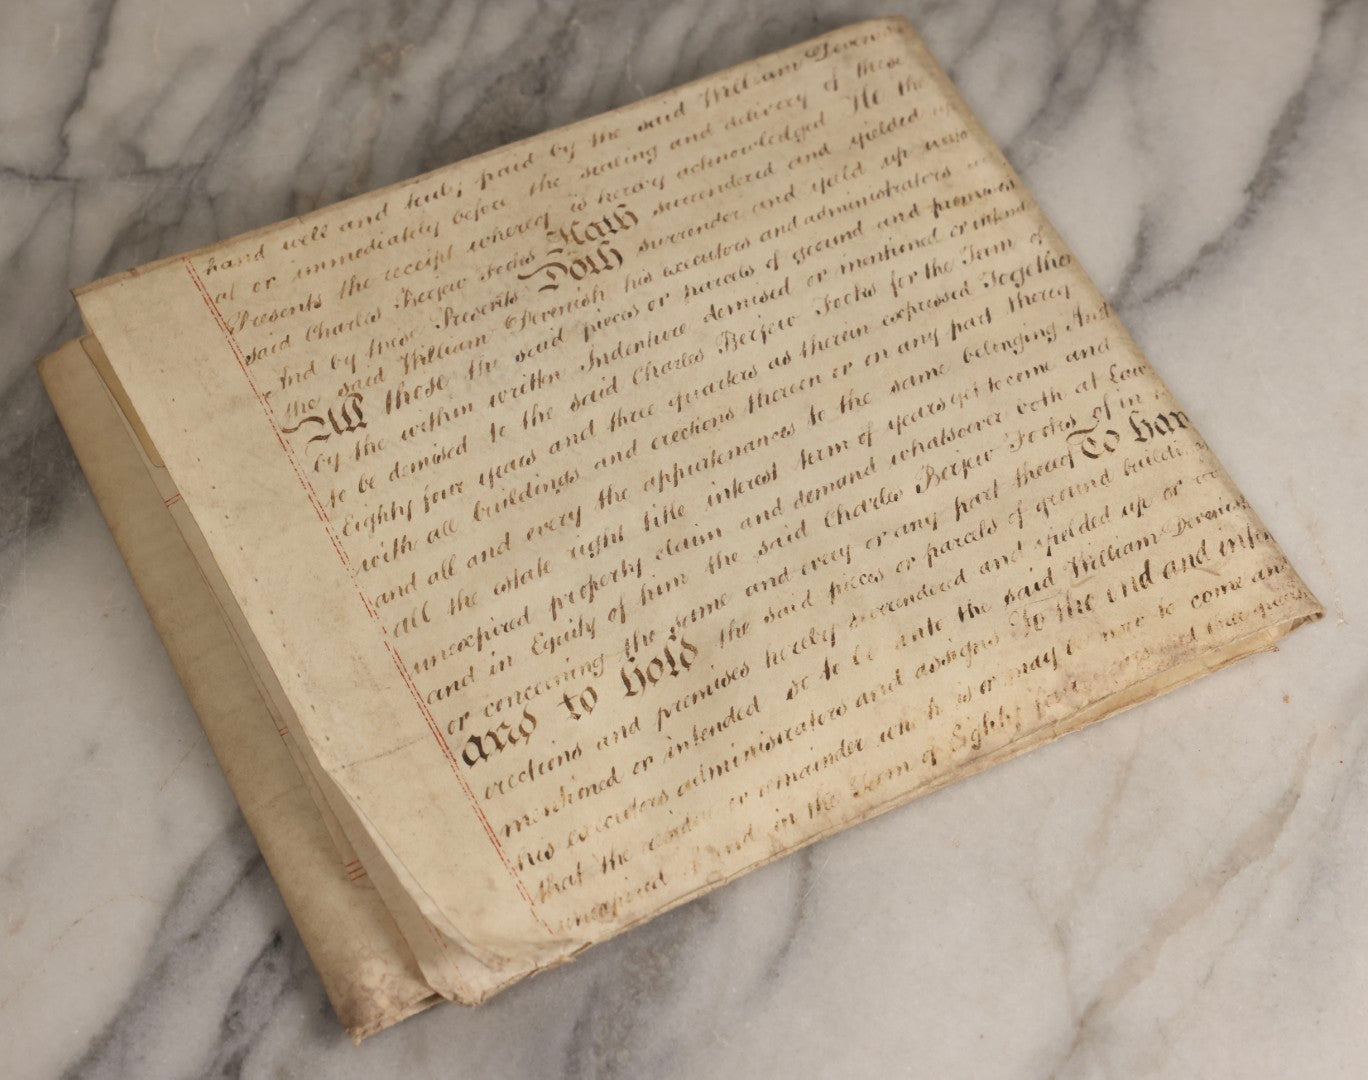 hand well and truly paid by the said William Devenish
at or immediately before the sealing and delivery of these
Presents the receipt whereof is hereby acknowledged He the
said Charles Berjew Fooks Hath surrendered and yielded up
And by these Presents Doth surrender and yield up unto
the said William Devenish his executors and administrators
All those the said pieces or parcels of ground and premises
by the within written Indenture demised or mentioned or intended
to be demised to the said Charles Berjew Fooks for the Term of
Eighty four years and three quarters as therein expressed Together
with all buildings and erections thereon or on any part thereof
and all and every the appurtenances to the same belonging And
all the estate right title interest term of years yet to come and
unexpired property claim and demand whatsoever both at Law
and in Equity of him the said Charles Berjew Fooks of in
or concerning the same and every or any part thereof To have
and to hold the said pieces or parcels of ground buildings
erections and premises hereby surrendered and yielded up or
mentioned or intended so to be unto the said William Devenish
his executors administrators and assigns To the end and intent
that the residue or remainder which is or may be now to come and
unexpired of and in the Term of Eighty four years and three quarters